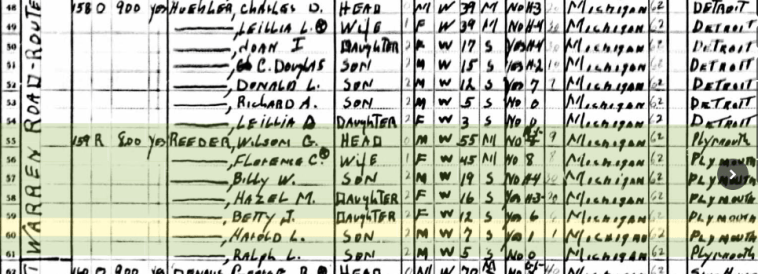 48 158 O 900 yes HUEHLER, CHARLES D. HEAD M W 39 M No H-3 MICHIGAN 62 DETROIT
49 , LEILLIA L. WIFE 1 F W 39 M No H-4 MICHIGAN 62 DETROIT
50 , JOAN I DAUGHTER 2 F W 17 S Yes H-4 MICHIGAN 62 DETROIT
51 , C. DOUGLAS SON 2 M W 15 S Yes H-2 MICHIGAN 62 DETROIT
52 , DONALD L. SON 2 M W 12 S Yes 7 MICHIGAN 62 DETROIT
53 , RICHARD A. SON 2 M W 5 S No 0 MICHIGAN 62 DETROIT
54 , LEILLIA D DAUGHTER 2 F W 3 S No 0 MICHIGAN 62 DETROIT
55 159 R 800 yes REEDER, WILSON G. HEAD 0 M W 55 M No 9 MICHIGAN 62 PLYMOUTH
56 , FLORENCE C. WIFE 1 F W 45 M No 8 MICHIGAN 62 PLYMOUTH
57 , BILLY W. SON 2 M W 19 S No H-4 MICHIGAN 62 PLYMOUTH
58 , HAZEL M. DAUGHTER 2 F W 16 S Yes H-3 MICHIGAN 62 PLYMOUTH
59 , BETTY J. DAUGHTER 2 F W 12 S Yes 6 MICHIGAN 62 PLYMOUTH
60 , HAROLD L. SON 2 M W 7 S Yes 1 MICHIGAN 62 PLYMOUTH
61 , RALPH L. SON 2 M W 5 S No 0 MICHIGAN 62 PLYMOUTH
900 HEAD
WARREN ROAD-ROUTE